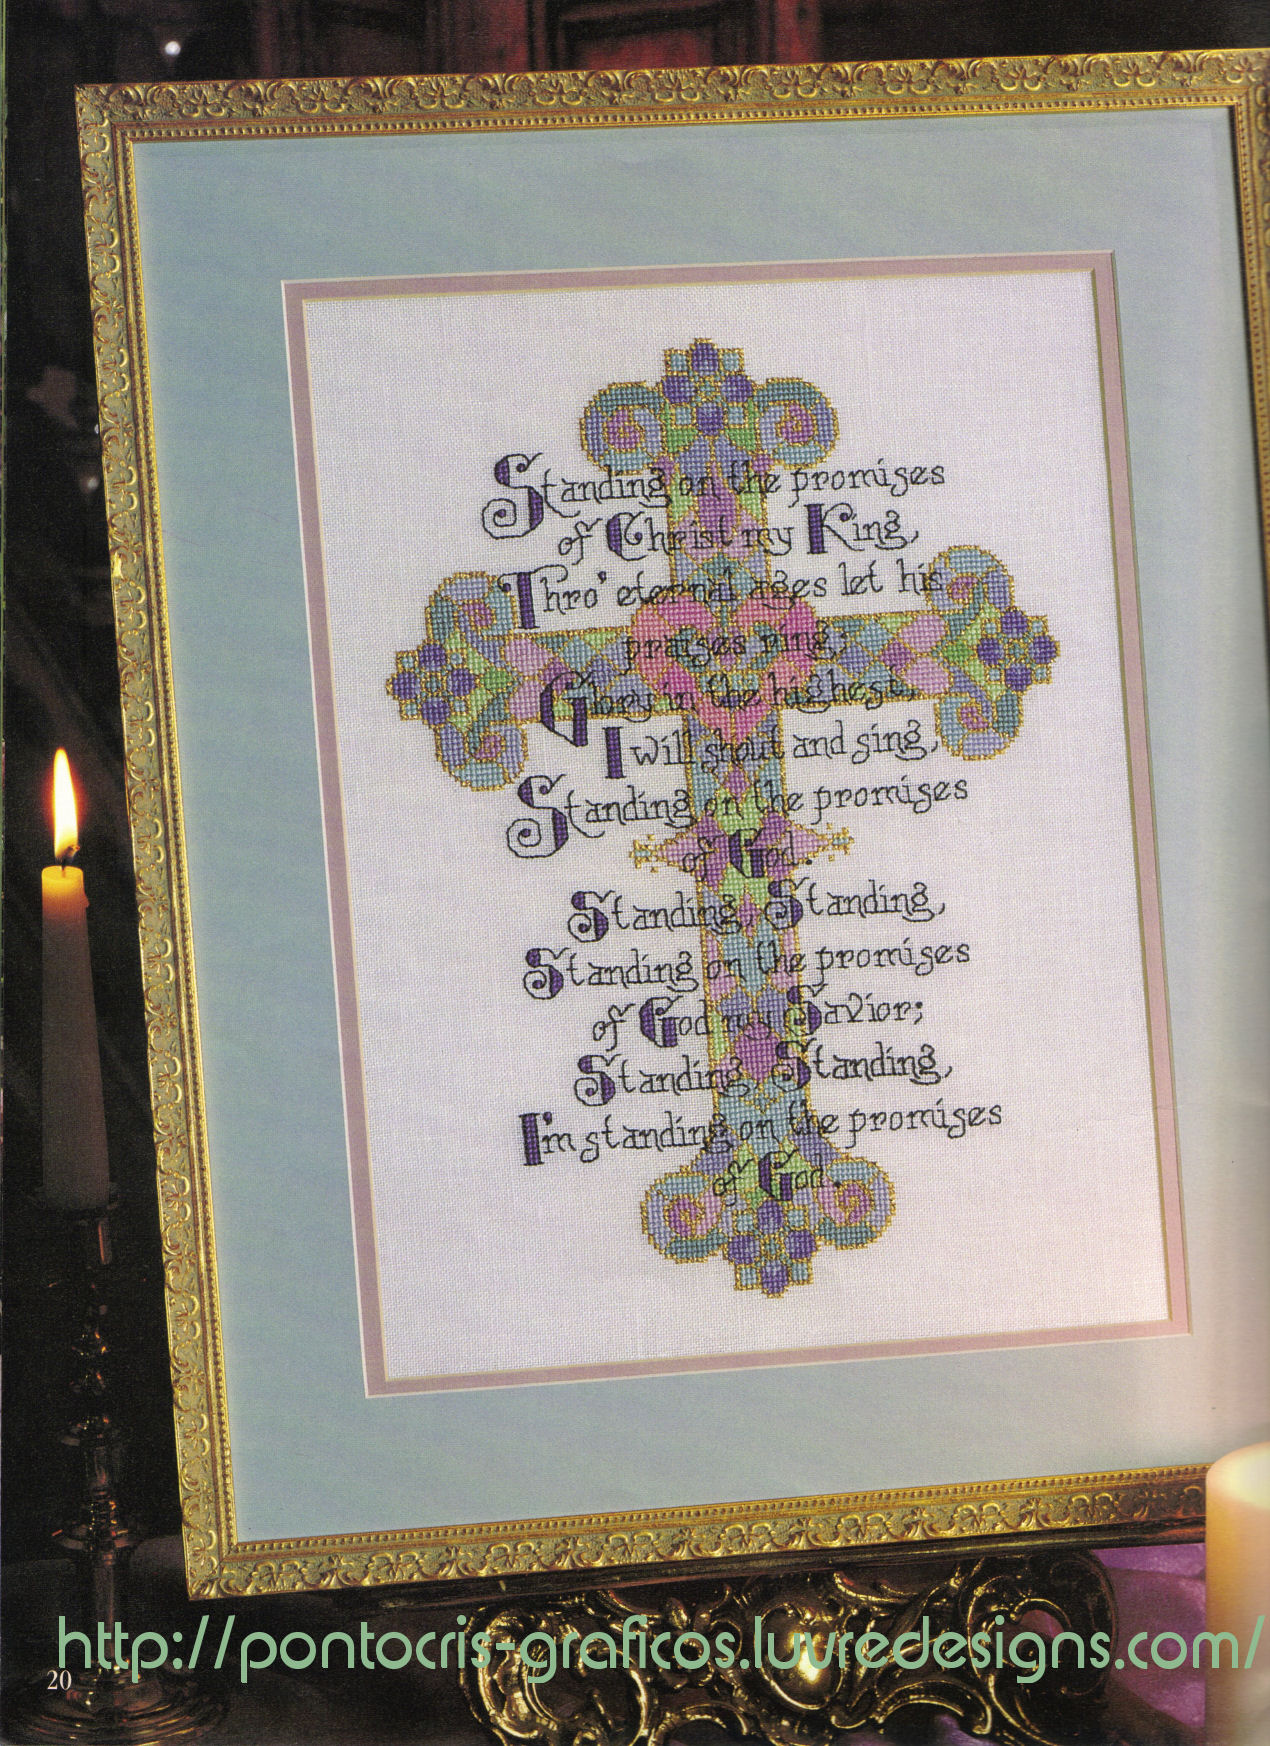 Standing on the promises
of Christ my King,
Thro' eternal ages let his
praises ring;
Glory in the highest,
I will shout and sing,
Standing on the promises
of God.
Standing, Standing,
Standing on the promises
of God my Savior;
Standing, Standing,
I'm standing on the promises
of God.
http://pontocris-graficos.luvredesigns.com/
20